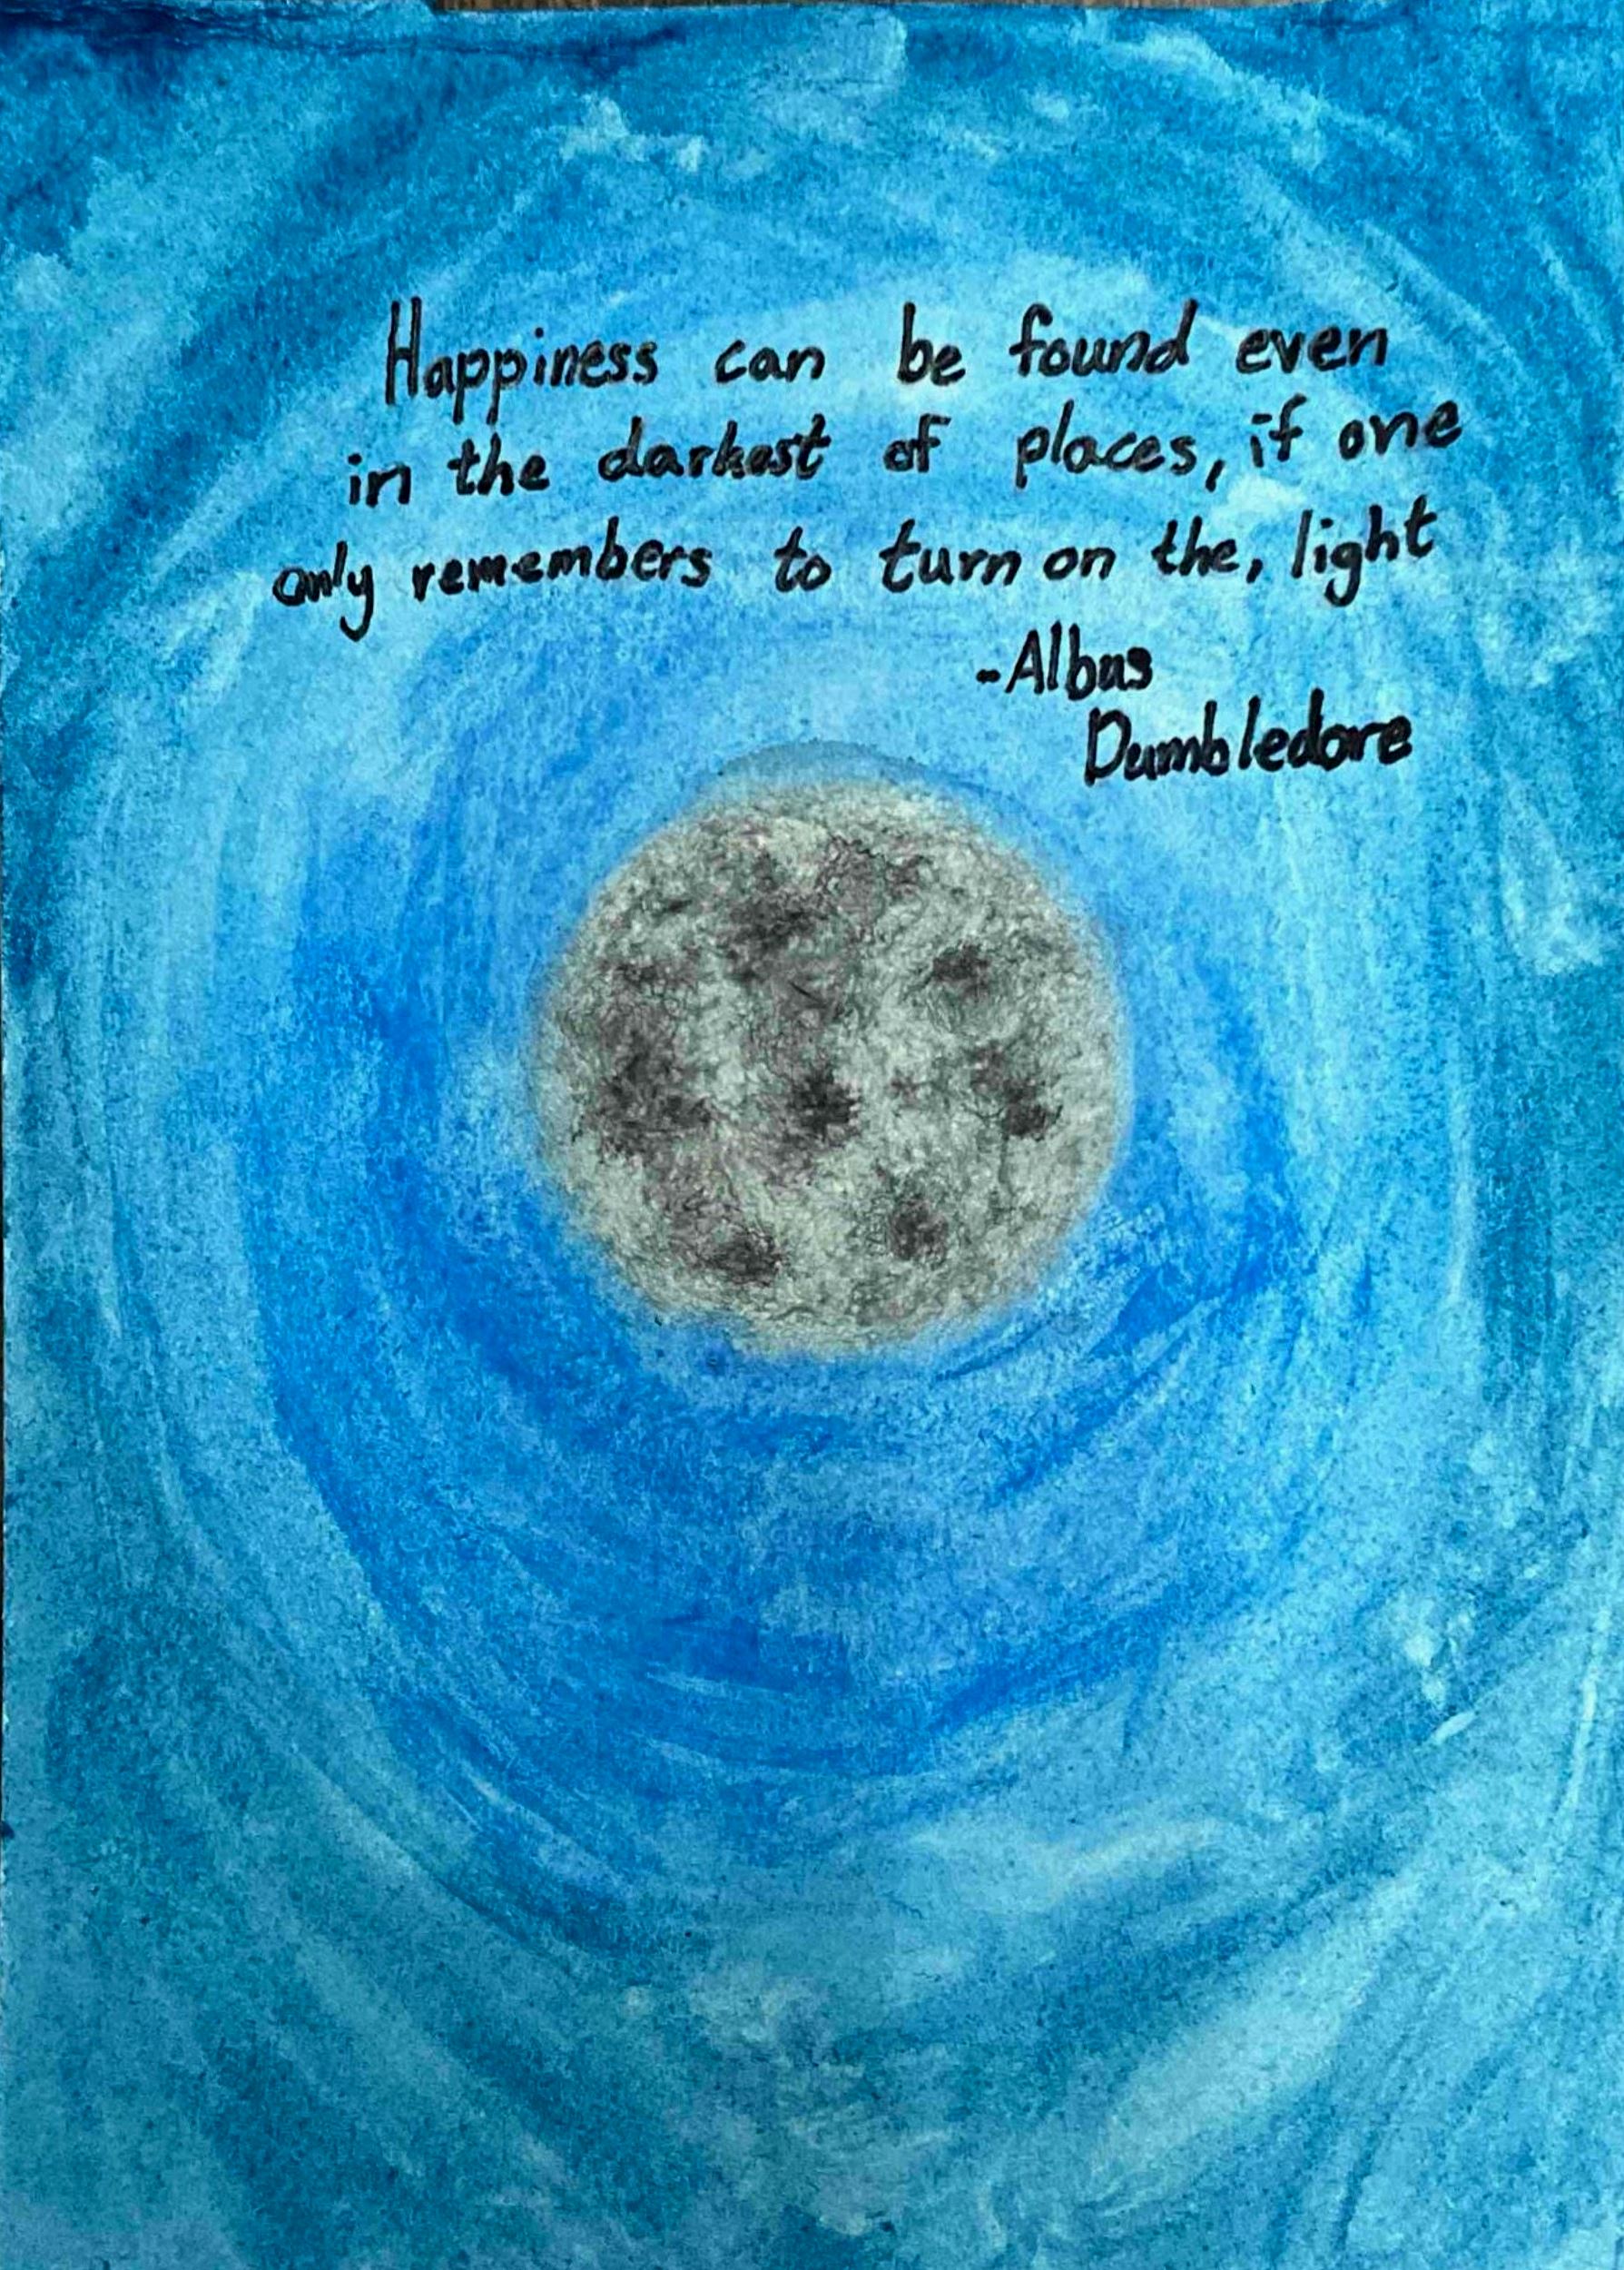 Happiness can be found even
in the darkest of places, if one
only remembers to turn on the, light
-Albus
Dumbledore